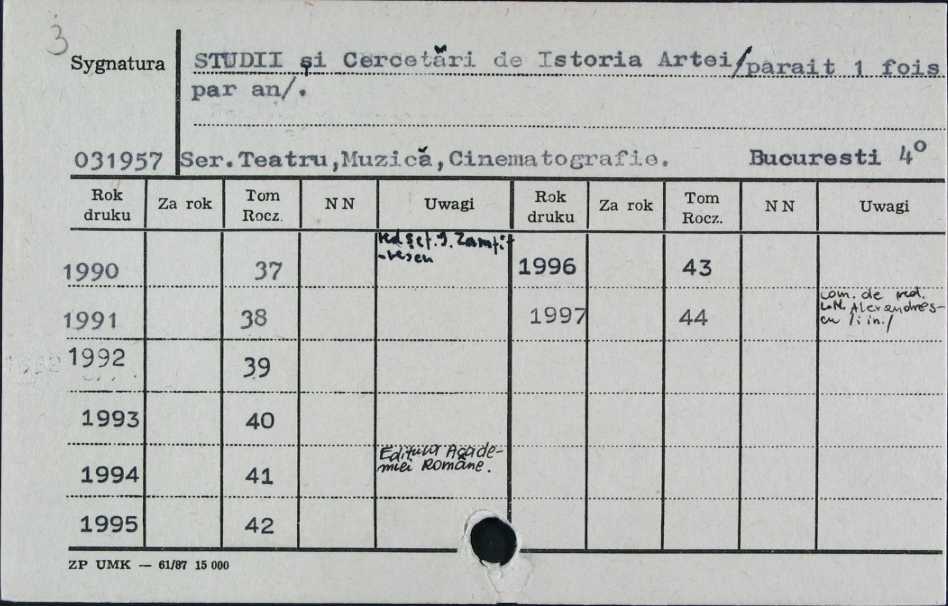 3
Sygnatura STUDII și Cercetări de Istoria Artei/parait 1 fois
par an/.
031957 Ser.Teatru,Muzică,Cinematografie. Bucuresti 4º
Rok druku Za rok Tom Rocz. NN Uwagi Rok druku Za rok Tom Rocz. NN Uwagi
1990 37 red. șef. I. Zamfi- 1996 43
-rescu
1991 38 1997 44 com. de red.
Alexandres-
cu /i in./
1992 39
1993 40
1994 41 Editura Acade-
miei Române.
1995 42
ZP UMK — 61/87 15 000